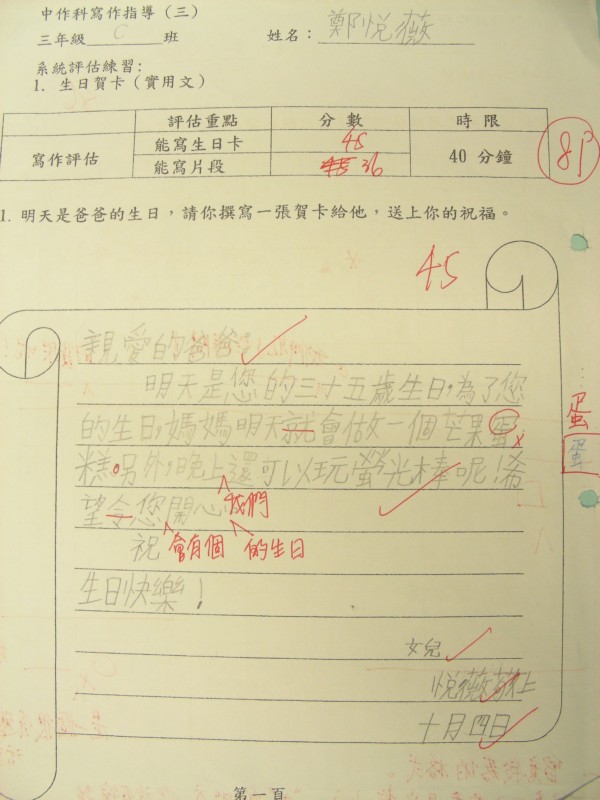 中作科寫作指導（三）
三年級 C 班 姓名：鄭悅薇
系統評估練習：
1. 生日賀卡（實用文）
評估重點 分數 時限
寫作評估 能寫生日卡 45 40 分鐘
能寫片段 45 36
81
1. 明天是爸爸的生日，請你撰寫一張賀卡給他，送上你的祝福。
45
親愛的爸爸：
明天是您的三十五歲生日，為了您
的生日，媽媽明天就會做一個芒果蛋
蛋
糕。另外，晚上還可以玩螢光棒呢！希
蛋
望令您開心 我們
祝 會有個 的生日
生日快樂！
女兒
悅薇敬上
十月四日
第一頁